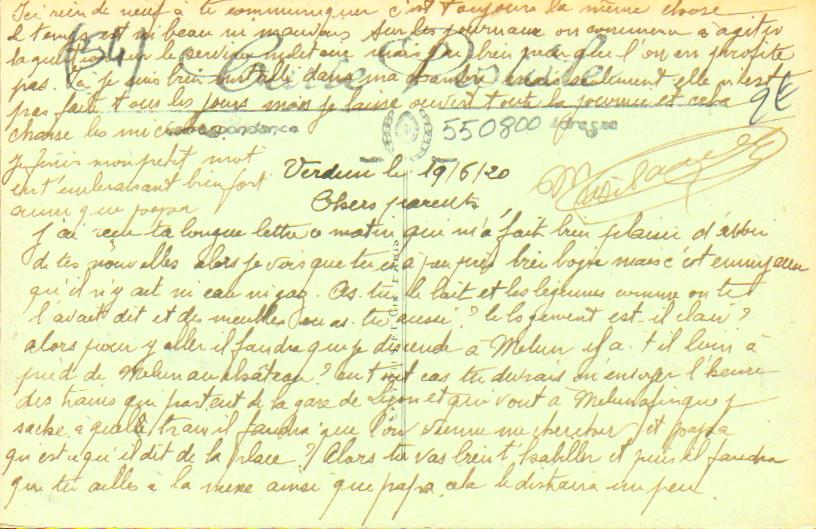 Ici rien de neuf à te communiquer c'est toujours la même chose
le temps est ni beau ni mauvais sur les journaux on commence à agiter
la question le service militaire mais bien que l'on en profite
pas. Ici je suis bien installé dans ma chambre mais seulement elle n'est
pas fait tous les jours mais je laisse ouvert toute la journée et cela
chasse les
(54) Carte Postale
9€
Correspondance
550800 Adresse
Je finis mon petit mot
en t'embrassant bien fort
ainsi que papa
Verdun le 19/6/20
Chers parents
J'ai reçu ta longue lettre ce matin qui m'a fait bien plaisir d'avoir
de tes nouvelles alors je vois que tu es à peu près bien logée mais c'est ennuyeux
qu'il n'y ait ni eau ni gaz. As-tu le lait et les légumes comme on te
l'avait dit et des meubles en as-tu aussi? le logement est-il clair?
alors pour y aller il faudra que je descende à Melun il y a-t-il loin à
pied de Melun au château? en tout cas tu devrais m'envoyer l'heure
des trains qui partent de la gare de Lyon et qui vont à Melun afin que je
sache à quelle train il faudra que l'on vienne me chercher et papa
qu'est-ce qu'il dit de la place? Alors tu vas bien t'habiller et puis il faudra
que tu ailles à la messe ainsi que papa cela le distraira un peu